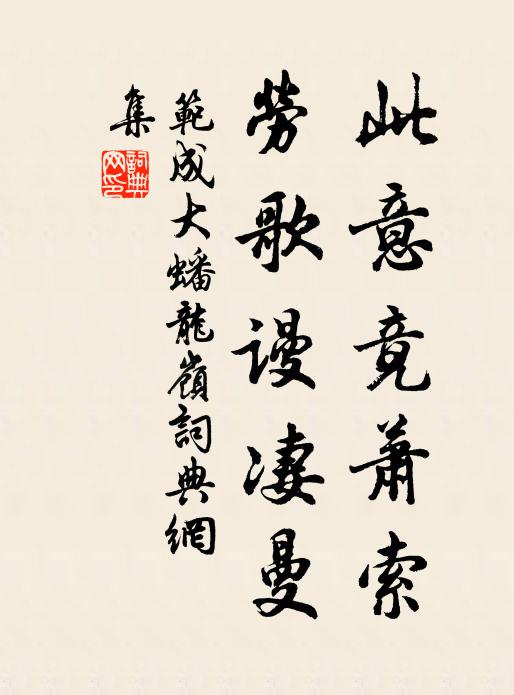 此意竟蕭索
勞歌謾凄曼
範成大蟠龍嶺詞典網
集
詞典網印